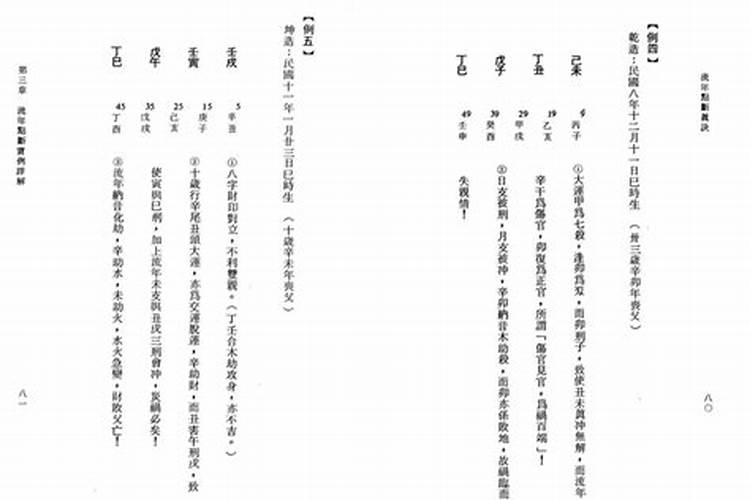 流年點斷眞訣
八〇
【例四】
乾造：民國八年十二月十一日巳時生　（卅三歲辛卯年喪父）
己未
丁丑
戊子
丁巳
9 丙子
19 乙亥
29 甲戌
39 癸酉
49 壬申
①大運甲爲七殺，逢卯爲刄，而卯刑子，致使丑未眞冲無解，而流年
辛干爲傷官，卯復爲正官，所謂「傷官見官，爲禍百端」！
②日支被刑，月支被冲，辛卯納音木助殺，而卯亦係敗地，故禍臨而
失親情！
【例五】
坤造：民國十一年一月廿三日巳時生　（十歲辛未年喪父）
壬戌
壬寅
戊午
丁巳
5 辛丑
15 庚子
25 己亥
35 戊戌
45 丁酉
①八字財印對立，不利雙親。（丁壬合木劫攻身，亦不吉。）
②十歲行辛尾丑頭大運，亦爲交運脫運，辛助財，而丑害午刑戌，致
使寅與巳刑，加上流年未支與丑戌三刑會冲，災禍必矣！
③流年納音化劫，辛助水，未助火，水火急變，財敗父亡！
第三章　流年點斷實例詳解
八一